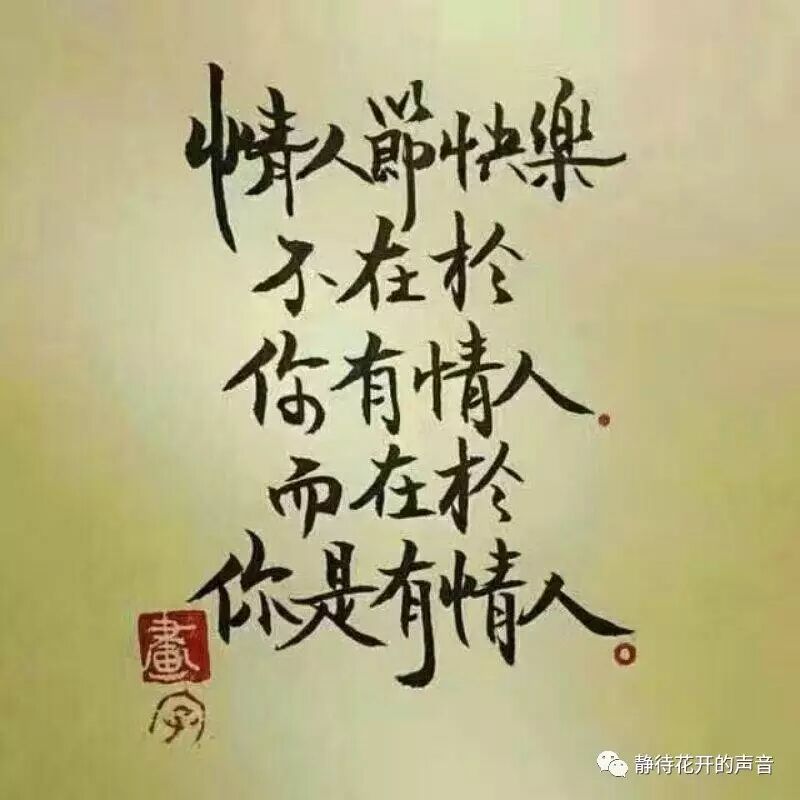 情人節快樂
不在於
你有情人.
而在於
你是有情人。
畫
字
静待花开的声音